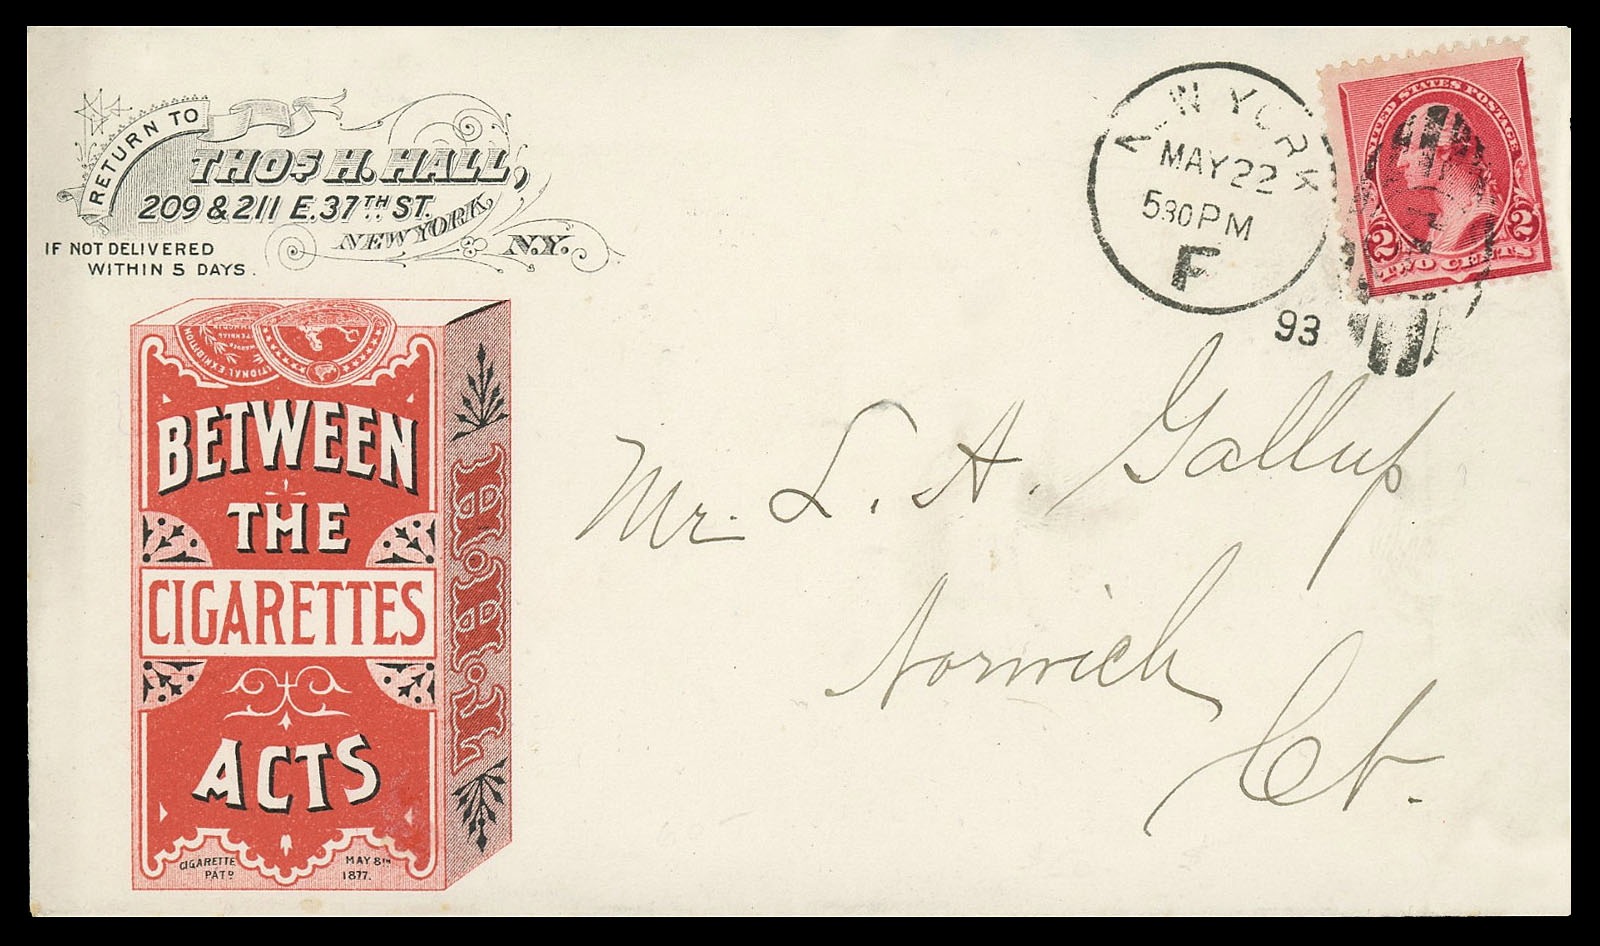 RETURN TO
THOS H. HALL,
209 & 211 E. 37TH ST.
NEW YORK, N.Y.
IF NOT DELIVERED
WITHIN 5 DAYS.
NEW YORK
MAY 22
530PM
F
93
UNITED STATES POSTAGE
2 2
TWO CENTS
Mr. L. A. Gallup
Norwich
Ct.
BETWEEN
THE
CIGARETTES
ACTS
CIGARETTE
PATD
MAY 8TH
1877.